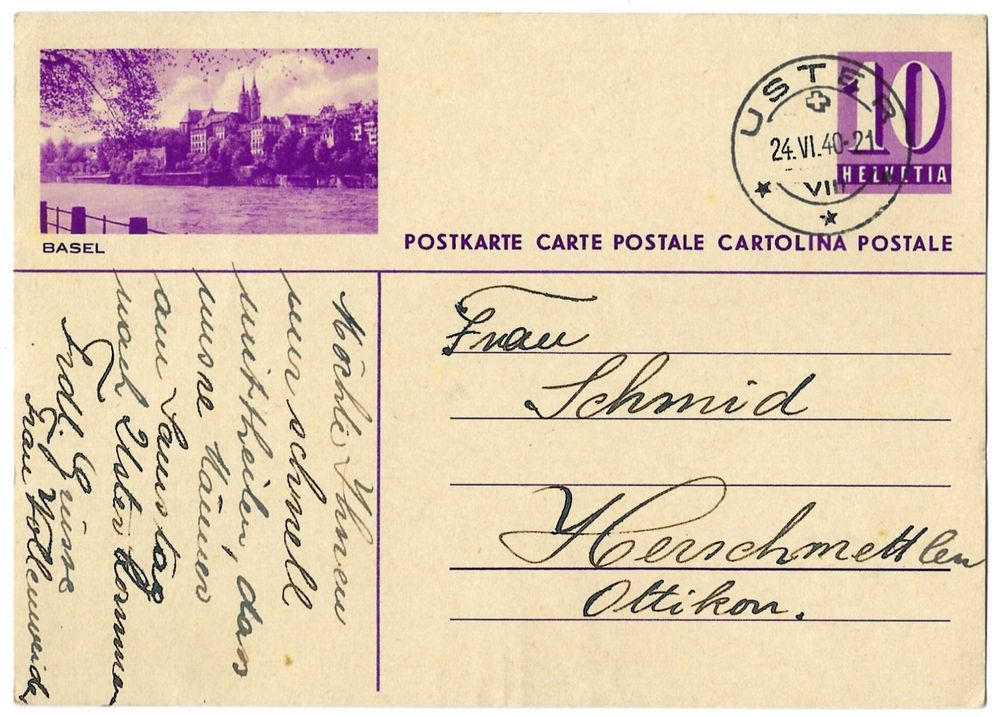 BASEL
USTER
24.VI.40-21
VIII
10
HELVETIA
POSTKARTE CARTE POSTALE CARTOLINA POSTALE
Möchte Ihnen
nur schnell
mittheilen, dass
unsre Männer
am Samstag
nach Uster komme
Frdl. Grüsse
Frau
Frau
Schmid
Herschmettlen
Ottikon.